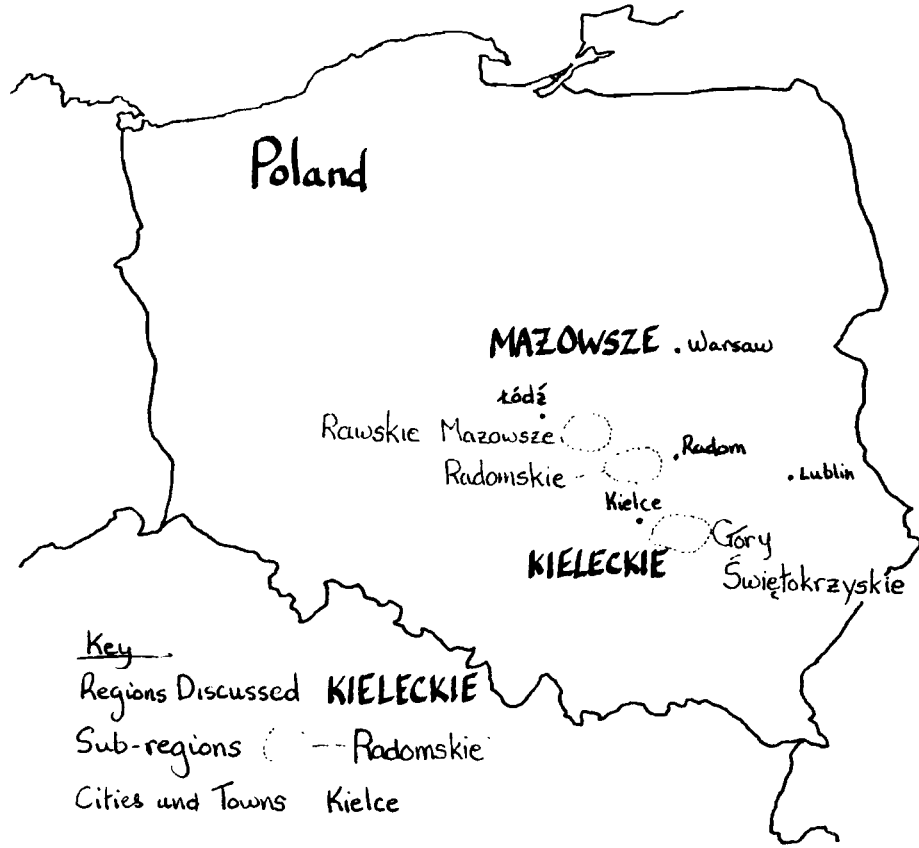 Poland
MAZOWSZE
Warsaw
Łódź
Rawskie Mazowsze
Radom
Radomskie
Lublin
Kielce
Góry
Świętokrzyskie
KIELECKIE
Key
Regions Discussed KIELECKIE
Sub-regions Radomskie
Cities and Towns Kielce